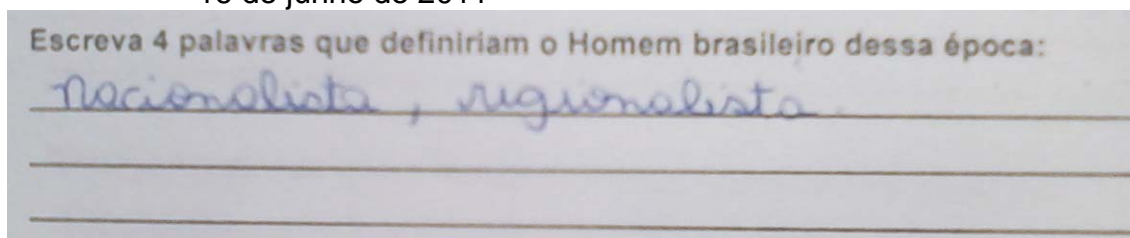 Escreva 4 palavras que definiriam o Homem brasileiro dessa época:
nacionalista, regionalista